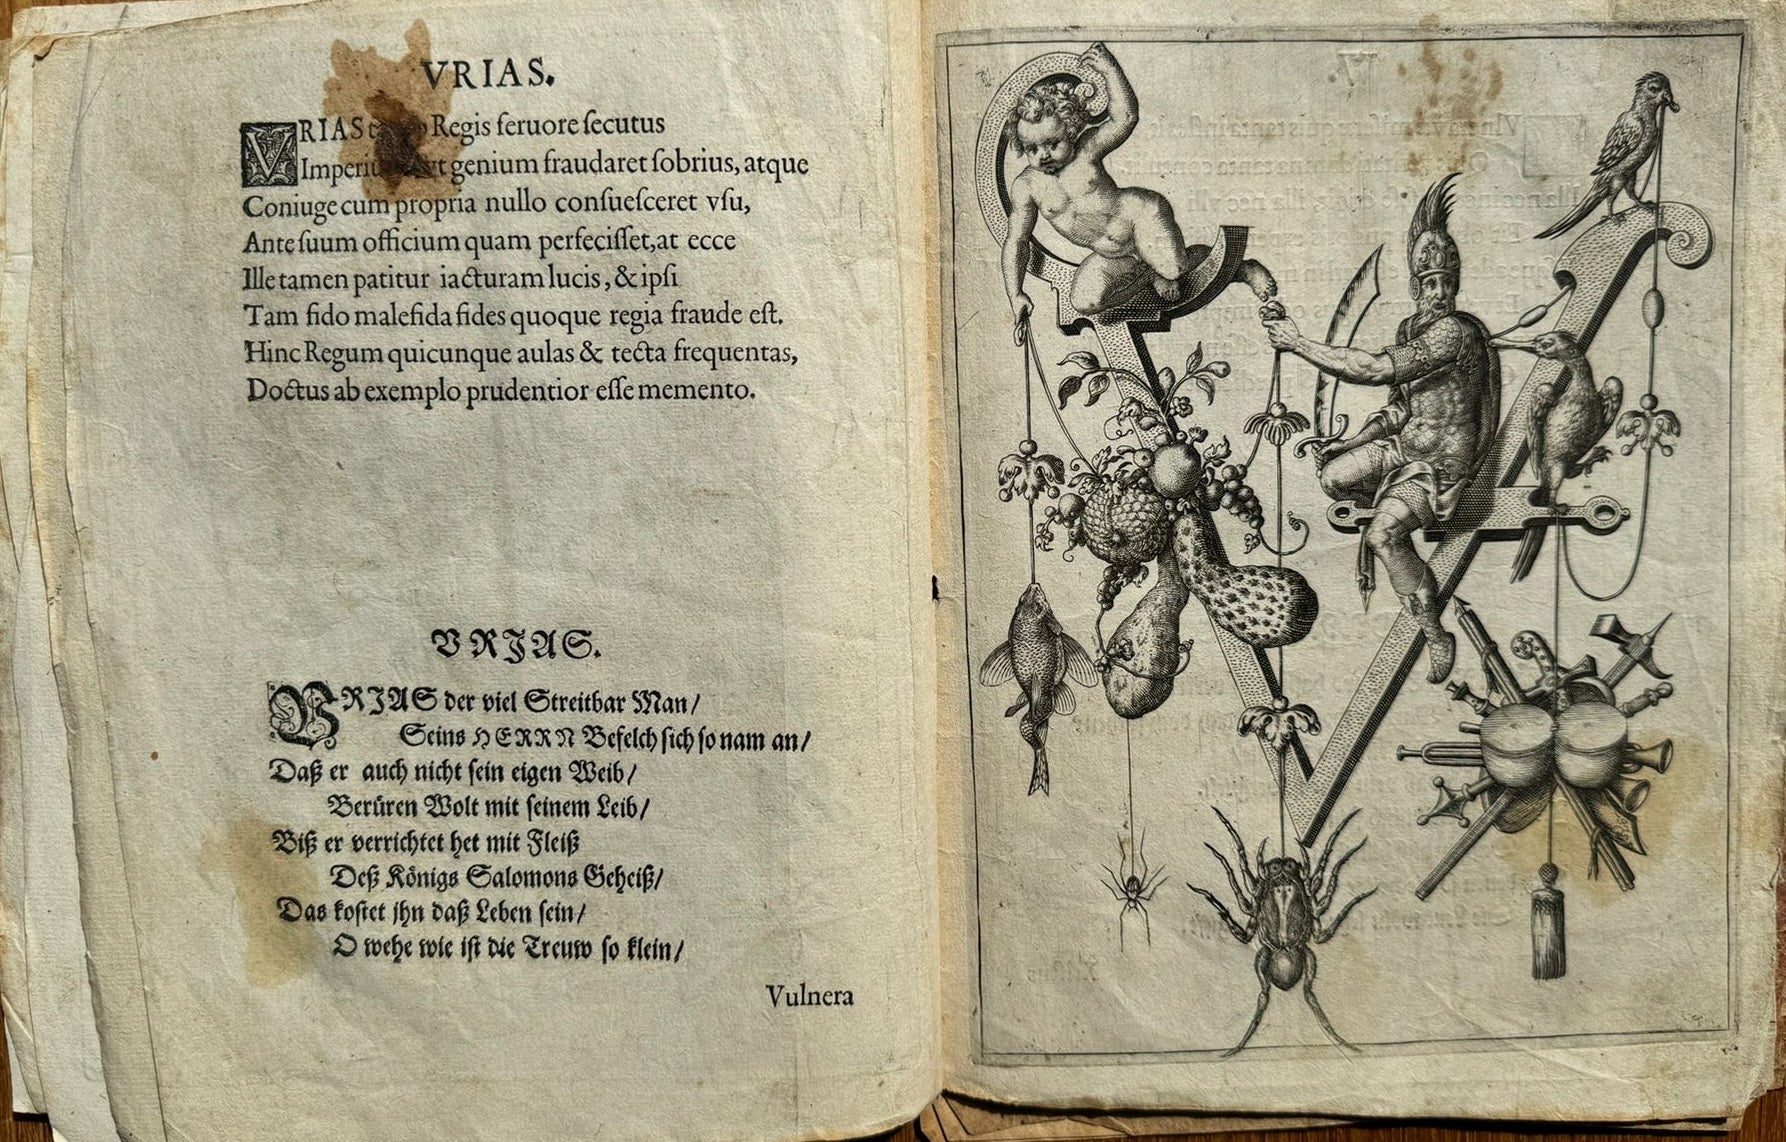 VRIAS.
VRIAS Regis feruore ſecutus
genium fraudaret ſobrius, atque
Coniuge cum propria nullo conſueſceret vſu,
Ante ſuum officium quam perfeciſſet, at ecce
Ille tamen patitur iacturam lucis, & ipſi
Tam fido maleſida fides quoque regia fraude eſt.
Hinc Regum quicunque aulas & tecta frequentas,
Doctus ab exemplo prudentior eſſe memento.
VRIAS.
VRIAS der viel Streitbar Man/
Seins HERRN Befelch ſich ſo nam an/
Daß er auch nicht ſein eigen Weib/
Berüren Wolt mit ſeinem Leib/
Biß er verrichtet het mit Fleiß
Deß Königs Salomons Geheiß/
Das koſtet jhn daß Leben ſein/
O wehe wie iſt die Treuw ſo klein/
Vulnera